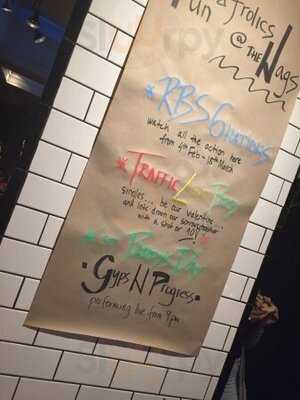 Fun & Frolics
@ THE Nags
* RBS 6 NATIONS
watch all the action here
from 4th Feb - 18th March
* TRAFFIC
singles... be our valentine...
and late down our
with a shot or 10!
Day
• GYPS N PROGRESS •
performing live from 9pm